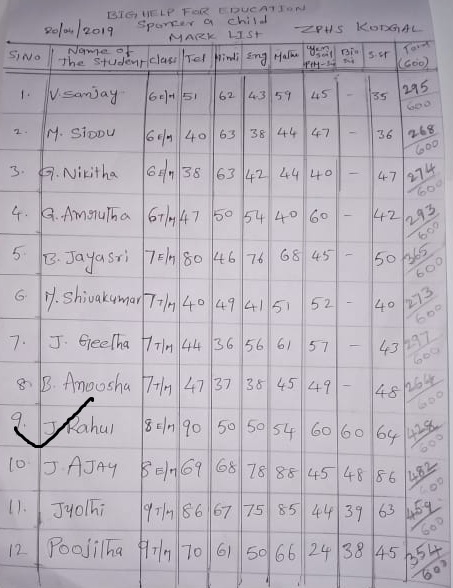 BIG HELP FOR EDUCATION
20/04/2019 Sponcer a child ZPHS KODGAL
MARK LIST
S.No Name of The Student Class Tel Hindi Eng Maths Bio S.st Total (600)
1. V. Sanjay 6E/M 51 62 43 59 45 - 35 295/600
2. M. SIDDU 6E/M 40 63 38 44 47 - 36 268/600
3. G. Nikitha 6E/M 38 63 42 44 40 - 47 274/600
4. G. Amrutha 6T/M 47 50 54 40 60 - 42 293/600
5. B. Jayasri 7E/M 80 46 76 68 45 - 50 365/600
6. M. Shivakumar 7T/M 40 49 41 51 52 - 40 273/600
7. J. Geetha 7T/M 44 36 56 61 57 - 43 297/600
8. B. Anousha 7T/M 47 37 38 45 49 - 48 264/600
9. J. Rahul 8E/M 90 50 50 54 60 60 64 428/600
10. J. AJAY 8E/M 69 68 78 88 45 48 86 482/600
11. Jyothi 9T/M 86 67 75 85 44 39 63 459/600
12. Poojitha 9T/M 70 61 50 66 24 38 45 354/600